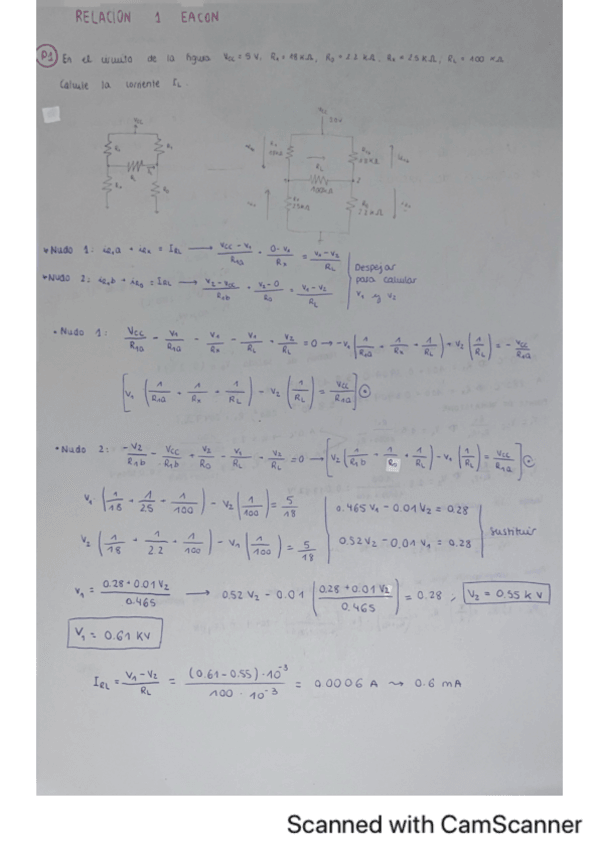 RELACIÓN 1 EACON
P1 En el circuito de la figura Vcc = 5 V, R1 = 18 KΩ, R0 = 2.2 KΩ, Rx = 25 KΩ, RL = 100 KΩ
Calcule la corriente IL.
Nudo 1: iR1a + iRx = IRL → (Vcc - V1)/R1a + (0 - V1)/Rx = (V1 - V2)/RL
Nudo 2: iR1b + iR0 = IRL → (V2 - Vcc)/R1b + (V2 - 0)/R0 = (V1 - V2)/RL
Despejar
para calcular
V1 y V2
Nudo 1: Vcc/R1a - V1/R1a - V1/Rx - V1/RL + V2/RL = 0 → -V1 (1/R1a + 1/Rx + 1/RL) + V2 (1/RL) = - Vcc/R1a
[V1 (1/R1a + 1/Rx + 1/RL) - V2 (1/RL) = Vcc/R1a]
Nudo 2: -V2/R1b - Vcc/R1b + V2/R0 - V1/RL - V2/RL = 0 → [V2 (1/R1b + 1/R0 + 1/RL) - V1 (1/RL) = Vcc/R1a]
V1 (1/18 + 1/25 + 1/100) - V2 (1/100) = 5/18
0.465 V1 - 0.01 V2 = 0.28
V2 (1/18 + 1/2.2 + 1/100) - V1 (1/100) = 5/18
0.52 V2 - 0.01 V1 = 0.28
sustituir
V1 = (0.28 + 0.01 V2)/0.465 → 0.52 V2 - 0.01 ((0.28 + 0.01 V2)/0.465) = 0.28 ; V2 = 0,55 k V
V1 = 0.61 KV
IRL = (V1 - V2)/RL = ((0.61 - 0.55) · 10^-3)/(100 · 10^-3) = 0.0006 A → 0.6 mA
Scanned with CamScanner